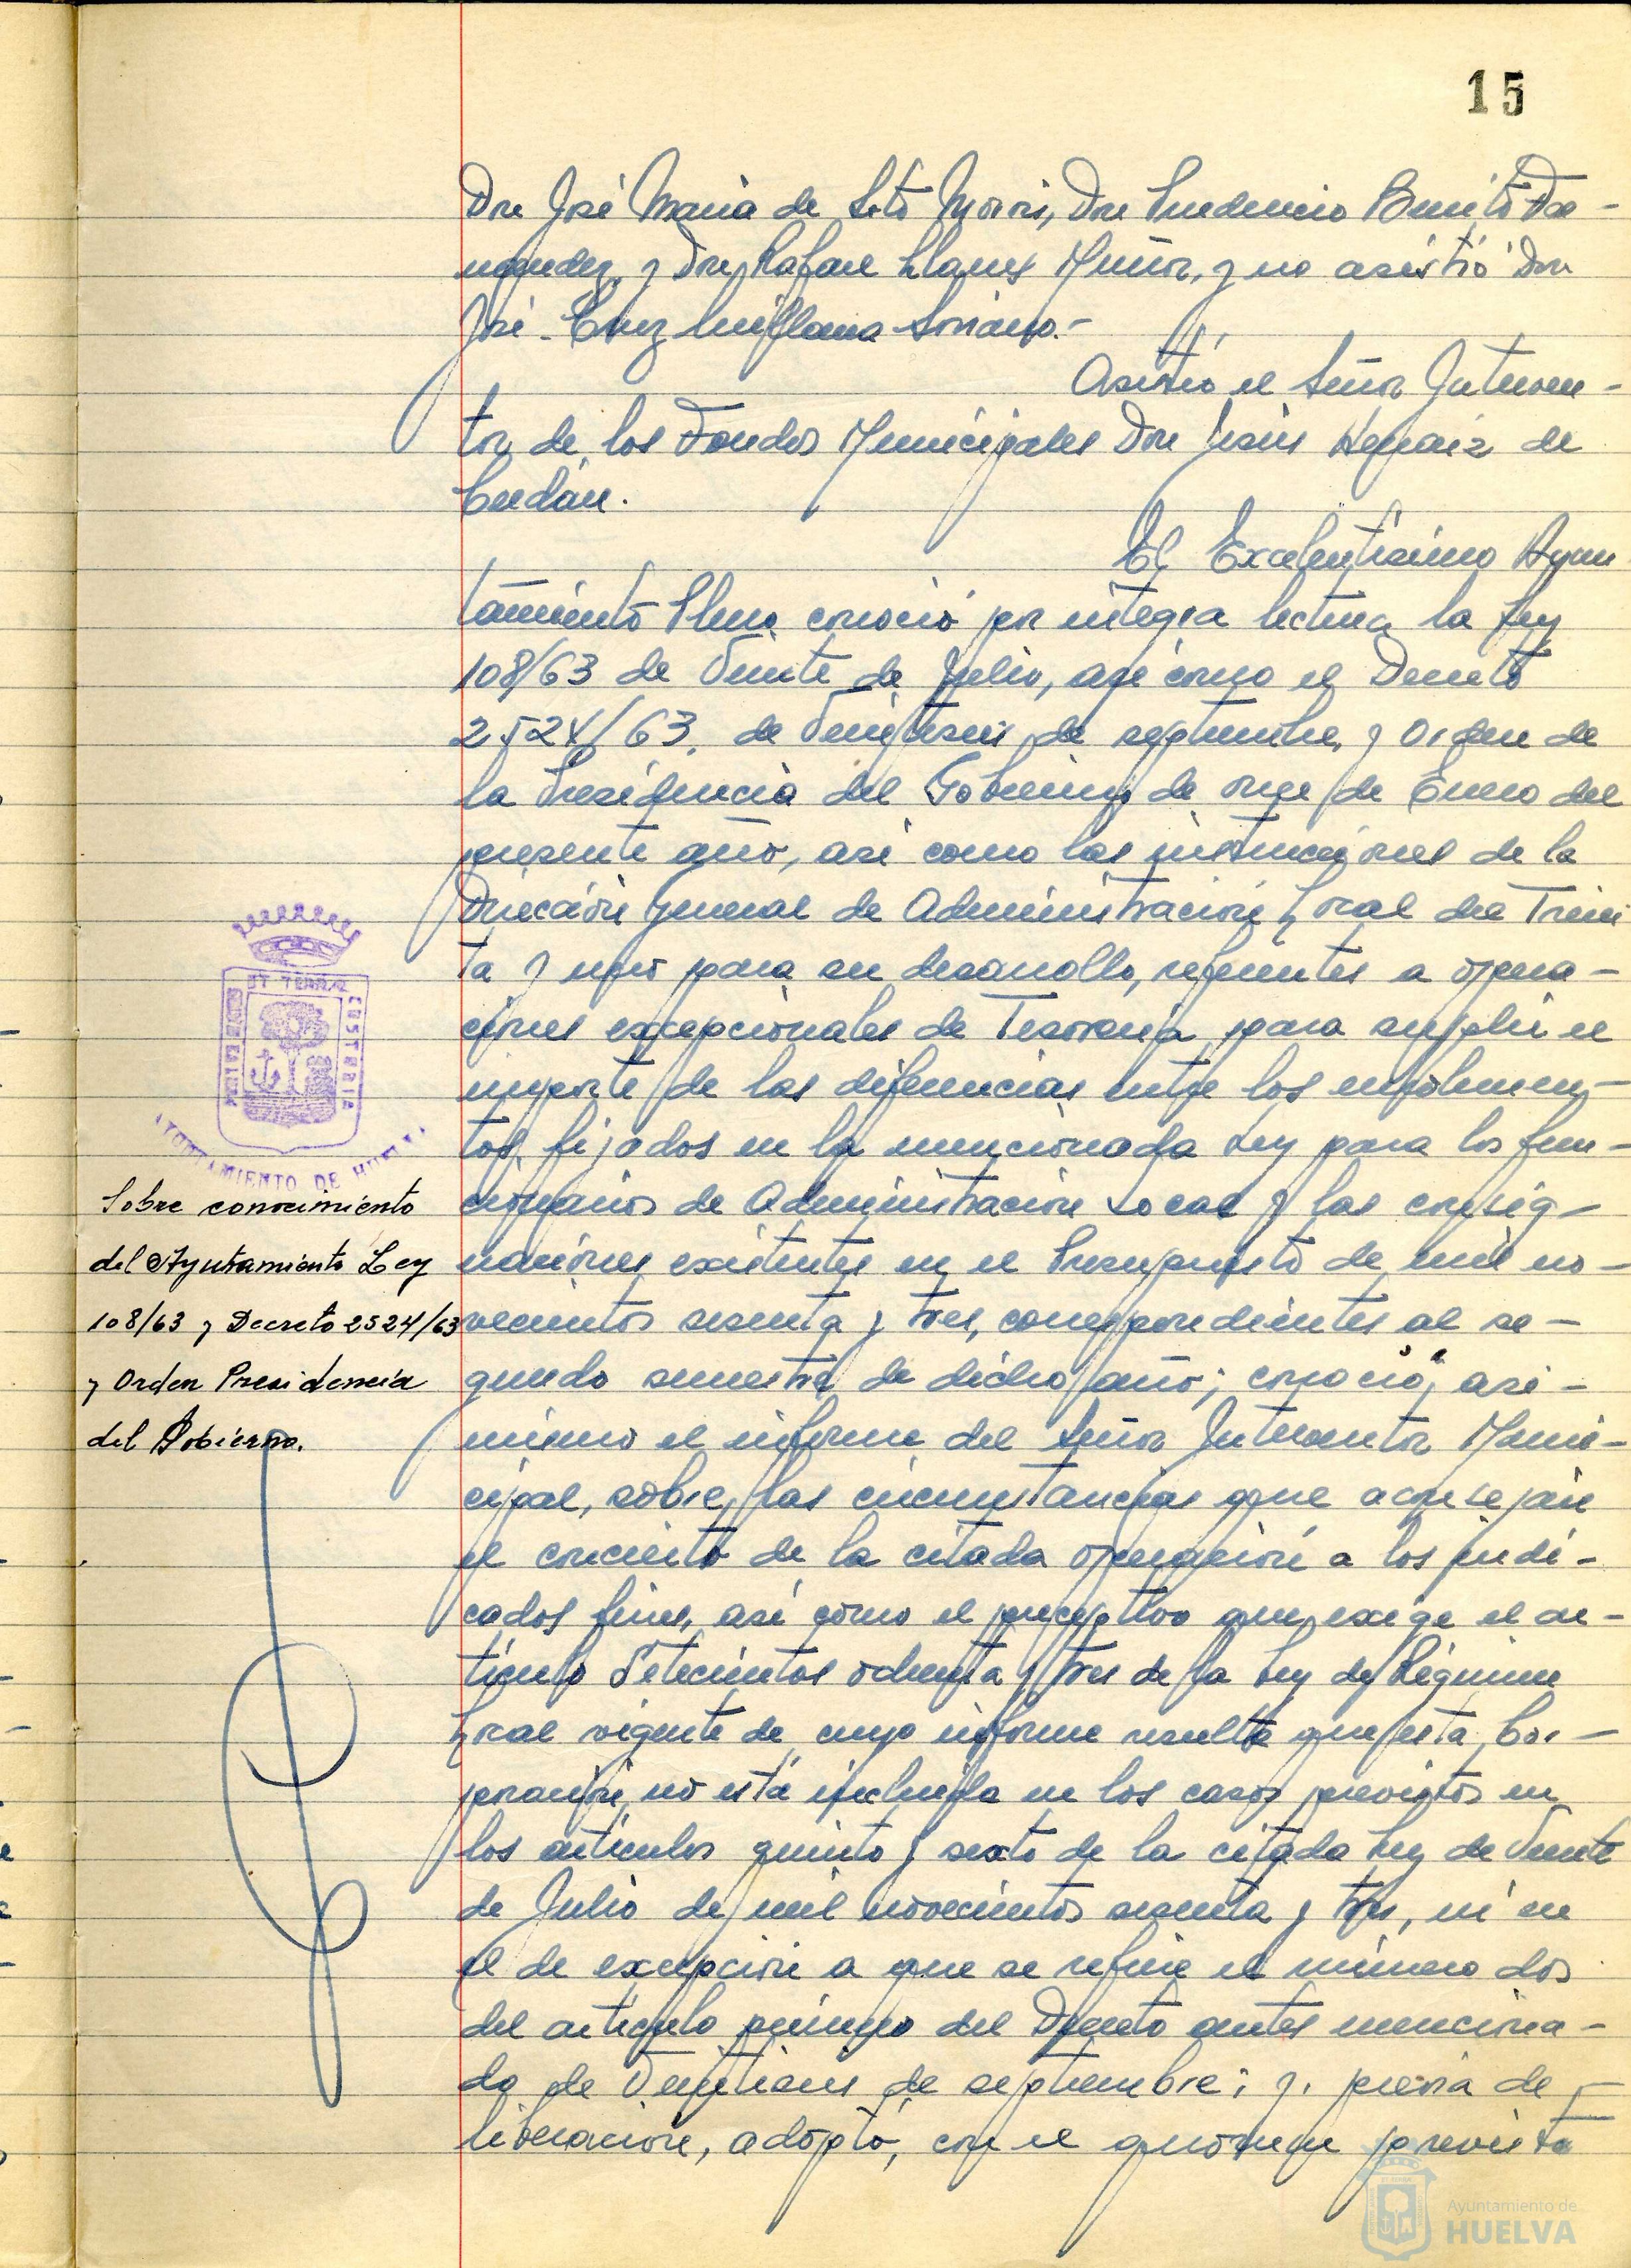 15
Don José María de Soto Morón, Don Prudencio Benito
y Don Rafael Llanes Muñoz, y no asistió Don
José Cruz Soriano.-
Asistió el Señor Interven-
tor de los Fondos Municipales Don Jesús de
Cerdán.
El Excelentísimo Ayun
tamiento Pleno conoció por íntegra lectura la Ley
108/63 de Veinte de Julio, así como el Decreto
2524/63, de Veintiseis de septiembre, y Orden de
la Presidencia del Gobierno de once de Enero del
presente año, así como las instrucciones de la
Dirección General de Administración Local del Trein
ta y uno para su desarrollo, referentes a opera-
ciones excepcionales de Tesorería para suplir el
importe de las diferencias entre los emolumen-
tos fijados en la mencionada Ley para los fun-
cionarios de Administración Local y las consig-
naciones existentes en el Presupuesto de mil no-
vecientos sesenta y tres, correspondientes al se-
gundo semestre de dicho año; conoció, asi-
mismo el informe del Señor Interventor Muni-
cipal, sobre las circunstancias que aconsejan
el concierto de la citada operación a los indi-
cados fines, así como el preceptivo que exige el ar-
tículo Setecientos ochenta y tres de la Ley de Régimen
Local vigente de cuyo informe resulta que esta Cor-
poración no está incluida en los casos previstos en
los artículos quinto y sexto de la citada Ley de Veinte
de Julio de mil novecientos sesenta y tres, ni en
el de excepción a que se refiere el número dos
del artículo primero del Decreto antes menciona-
do de Veintiseis de septiembre; y, previa de-
liberación, adoptó, con el quórum previsto
ST TERRAE
CUSTODIA
PORTUS MARIS
AYUNTAMIENTO DE HUELVA
Sobre conocimiento
del Ayuntamiento Ley
108/63 y Decreto 2524/63
y Orden Presidencia
del Gobierno.
Ayuntamiento de
HUELVA